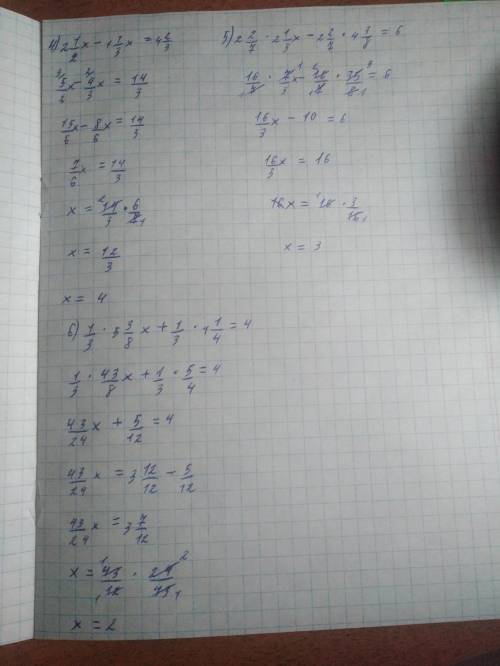 4) 2 1/2 x - 1 1/3 x = 4 2/3
5/2 x - 4/3 x = 14/3
15/6 x - 8/6 x = 14/3
7/6 x = 14/3
x = 14/3 · 6/7
x = 12/3
x = 4
5) 2 2/7 · 2 1/3 x - 2 2/7 · 4 3/8 = 6
16/7 · 7/3 x - 16/7 · 35/8 = 6
16/3 x - 10 = 6
16/3 x = 16
x = 16 · 3/16
x = 3
6) 1/3 · 5 3/8 x + 1/3 · 1 1/4 = 4
1/3 · 43/8 x + 1/3 · 5/4 = 4
43/24 x + 5/12 = 4
43/24 x = 3 12/12 - 5/12
43/24 x = 3 7/12
x = 43/12 · 24/43
x = 2